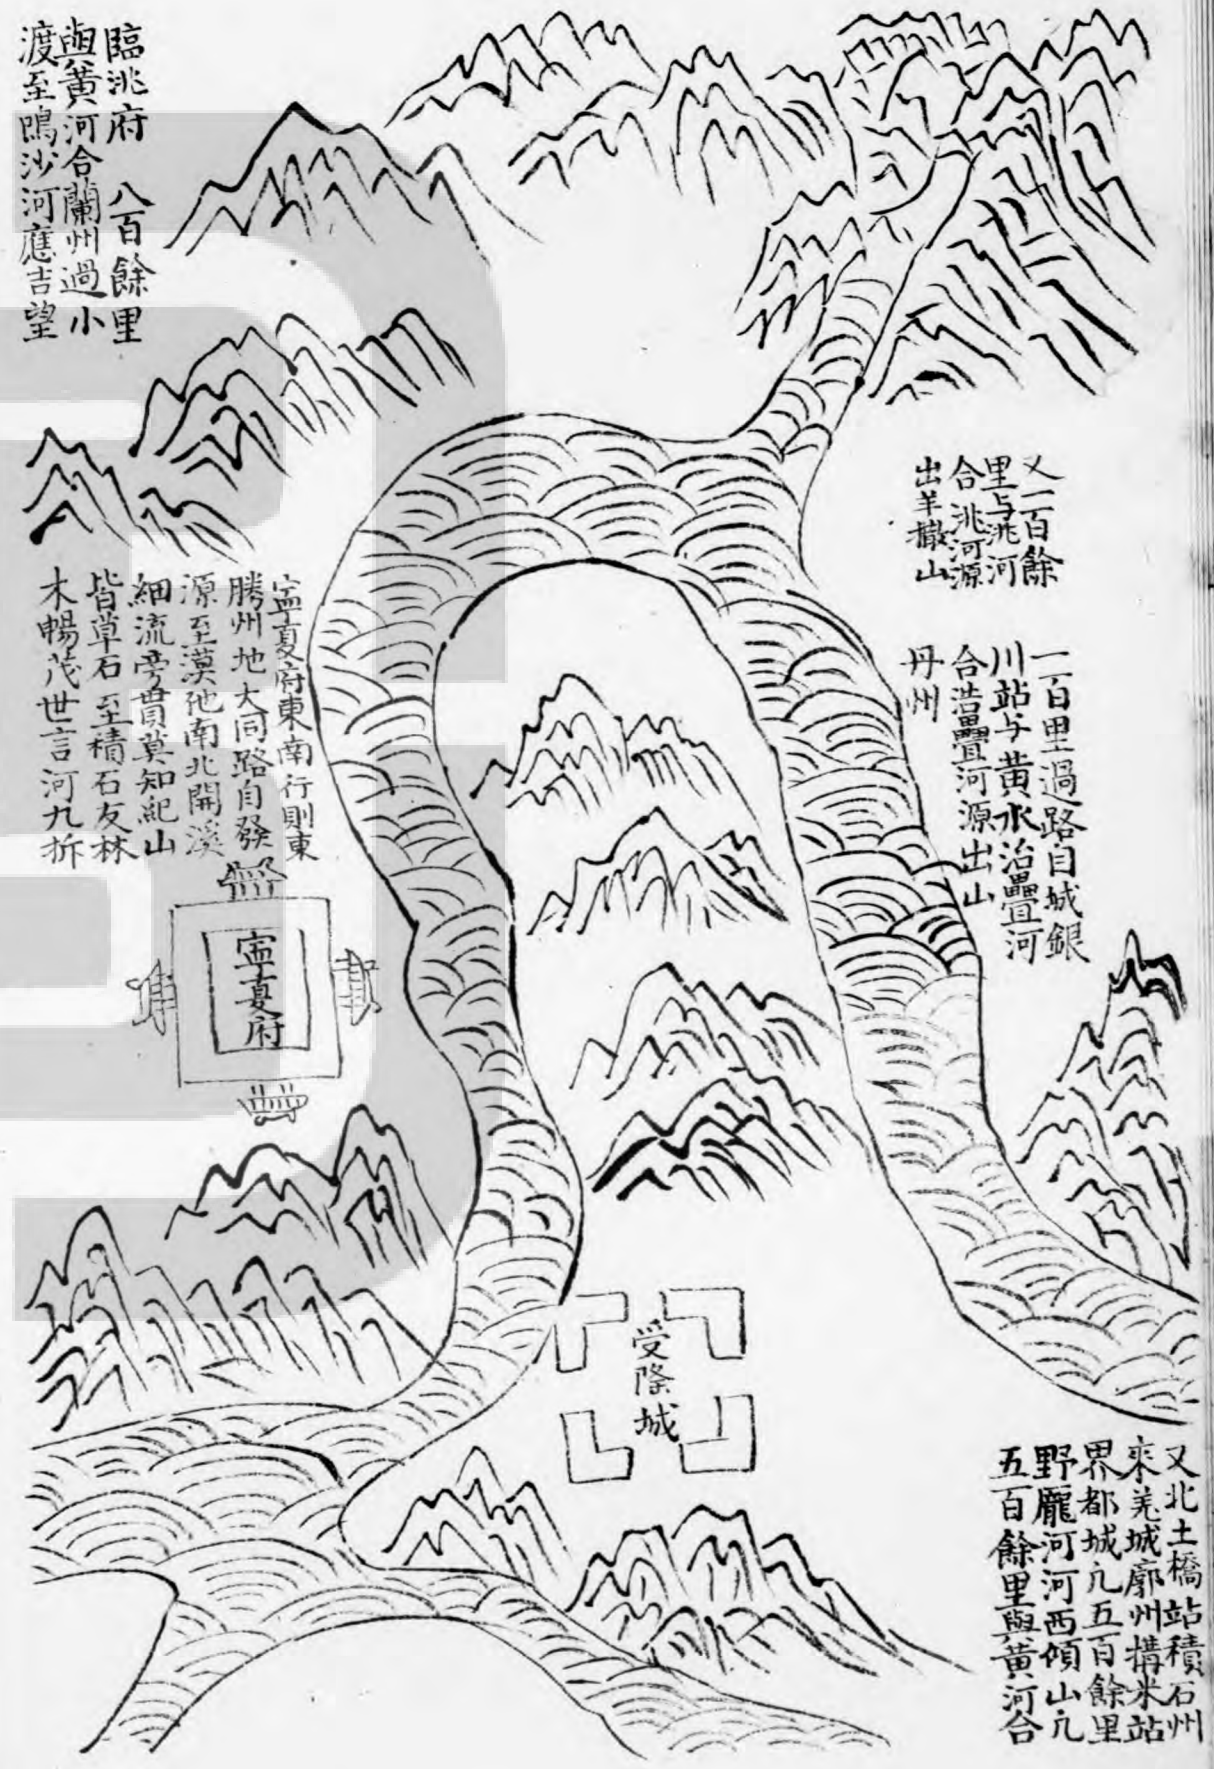 又一百餘
里与洮河
合洮河源
出羊撒山
一百里過路自城銀
川站与黄水浩亹河
合浩亹河源出山
丹州
又北土橋站積石州
來羌城廓州搆米站
界都城凢五百餘里
野龎河河西傾山凢
五百餘里與黄河合
臨洮府　八百餘里
與黄河合蘭州過小
渡至鳴沙河應吉望
寧夏府東南行則東
勝州地大同路自發
源至漠地南北開溪
細流旁貫莫知紀山
皆草石至積石友林
木暢茂世言河九折
寧夏府
受降城